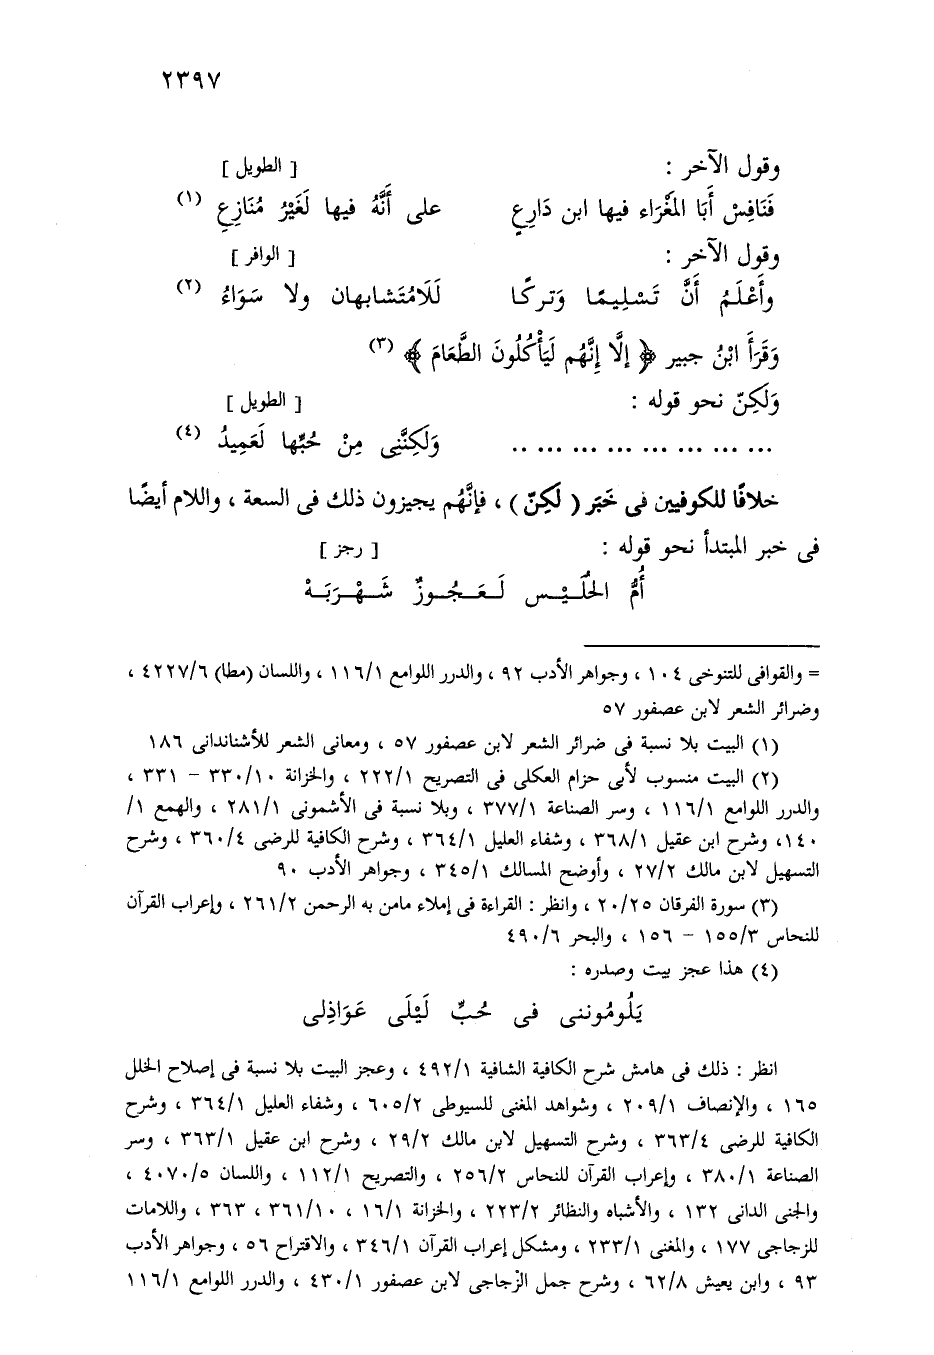 ٢٣٩٧
وقول الآخر : [ الطويل ]
فَنَافِسْ أَبَا المَغْرَاء فيها ابن دَارِعٍ على أَنَّهُ فيها لَغَيْرُ مُنَازِعِ (١)
وقول الآخر : [ الوافر ]
وأَعْلَمُ أَنَّ تَسْلِيمًا وَتركًا لَلَامُتَشابهان ولا سَوَاءُ (٢)
وَقَرَأَ ابْنُ جبير ﴿ إلَّا إِنَّهُم لَيَأْكُلُونَ الطَّعَامَ ﴾ (٣)
وَلَكِنّ نحو قوله : [ الطويل ]
... ... ... ... ... ... ... .. وَلَكِنَّنِى مِنْ حُبِّها لَعَمِيدُ (٤)
خلافًا للكوفيين فى خَبَر ( لَكِنّ ) ، فإنَّهُم يجيزون ذلك فى السعة ، واللام أيضًا
فى خبر المبتدأ نحو قوله : [ رجز ]
أُمُّ الحُلَيْس لَعَجُوزٌ شَهْرَبَهْ
= والقوافى للتنوخى ١٠٤ ، وجواهر الأدب ٩٢ ، والدرر اللوامع ١١٦/١ ، واللسان (مطا) ٤٢٢٧/٦ ،
وضرائر الشعر لابن عصفور ٥٧
(١) البيت بلا نسبة فى ضرائر الشعر لابن عصفور ٥٧ ، ومعانى الشعر للأشناندانى ١٨٦
(٢) البيت منسوب لأبى حزام العكلى فى التصريح ٢٢٢/١ ، والخزانة ٣٣٠/١٠ – ٣٣١ ،
والدرر اللوامع ١١٦/١ ، وسر الصناعة ٣٧٧/١ ، وبلا نسبة فى الأشمونى ٢٨١/١ ، والهمع ١/
١٤٠، وشرح ابن عقيل ٣٦٨/١ ، وشفاء العليل ٣٦٤/١ ، وشرح الكافية للرضى ٣٦٠/٤ ، وشرح
التسهيل لابن مالك ٢٧/٢ ، وأوضح المسالك ٣٤٥/١ ، وجواهر الأدب ٩٠
(٣) سورة الفرقان ٢٠/٢٥ ، وانظر : القراءة فى إملاء مامن به الرحمن ٢٦١/٢ ، وإعراب القرآن
للنحاس ١٥٥/٣ – ١٥٦ ، والبحر ٤٩٠/٦
(٤) هذا عجز بيت وصدره :
يَلُومُوننى فى حُبِّ لَيْلَى عَوَاذِلى
انظر : ذلك فى هامش شرح الكافية الشافية ٤٩٢/١ ، وعجز البيت بلا نسبة فى إصلاح الخلل
١٦٥ ، والإنصاف ٢٠٩/١ ، وشواهد المغنى للسيوطى ٦٠٥/٢ ، وشفاء العليل ٣٦٤/١ ، وشرح
الكافية للرضى ٣٦٣/٤ ، وشرح التسهيل لابن مالك ٢٩/٢ ، وشرح ابن عقيل ٣٦٣/١ ، وسر
الصناعة ٣٨٠/١ ، وإعراب القرآن للنحاس ٢٥٦/٢ ، والتصريح ١١٢/١ ، واللسان ٤٠٧٠/٥ ،
والجنى الدانى ١٣٢ ، والأشباه والنظائر ٢٢٣/٢ ، والخزانة ١٦/١ ، ٣٦١/١٠ ، ٣٦٣ ، واللامات
للزجاجى ١٧٧ ، والمغنى ٢٣٣/١ ، ومشكل إعراب القرآن ٣٤٦/١ ، والاقتراح ٥٦ ، وجواهر الأدب
٩٣ ، وابن يعيش ٦٢/٨ ، وشرح جمل الزجاجى لابن عصفور ٤٣٠/١ ، والدرر اللوامع ١١٦/١